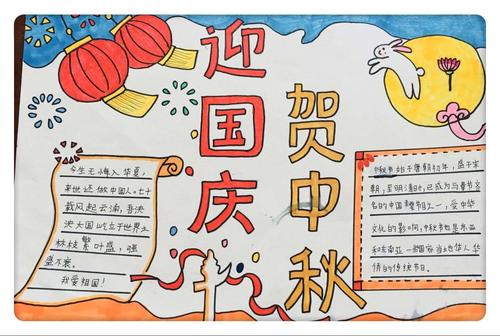 迎国庆
贺中秋
今生无悔入华夏,
来世还做中国人。七十
载风起云涌,吾泱
泱大国屹立于世界之
林枝繁叶盛,强
盛不衰。
我爱祖国!
中秋节始于唐朝初年,盛于宋
朝,至明清时,已成为与春节齐
名的中国传统节日之一,受中华
文化的影响,中秋节也是东亚
和东南亚一些国家当地华人华
侨的传统节日。